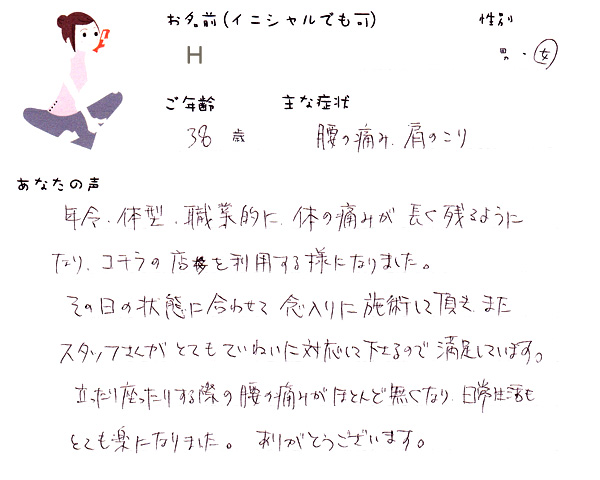 お名前(イニシャルでも可)
性別
H
男・女
ご年齢
主な症状
38 歳
腰の痛み、肩のこり
あなたの声
年令、体型、職業的に、体の痛みが長く残るように
なり、コチラの店を利用する様になりました。
その日の状態に合わせて念入りに施術して頂き、また
スタッフさんがとてもていねいに対応して下さるので満足しています。
立ったり座ったりする際の腰の痛みがほとんど無くなり、日常生活も
とても楽になりました。ありがとうございます。